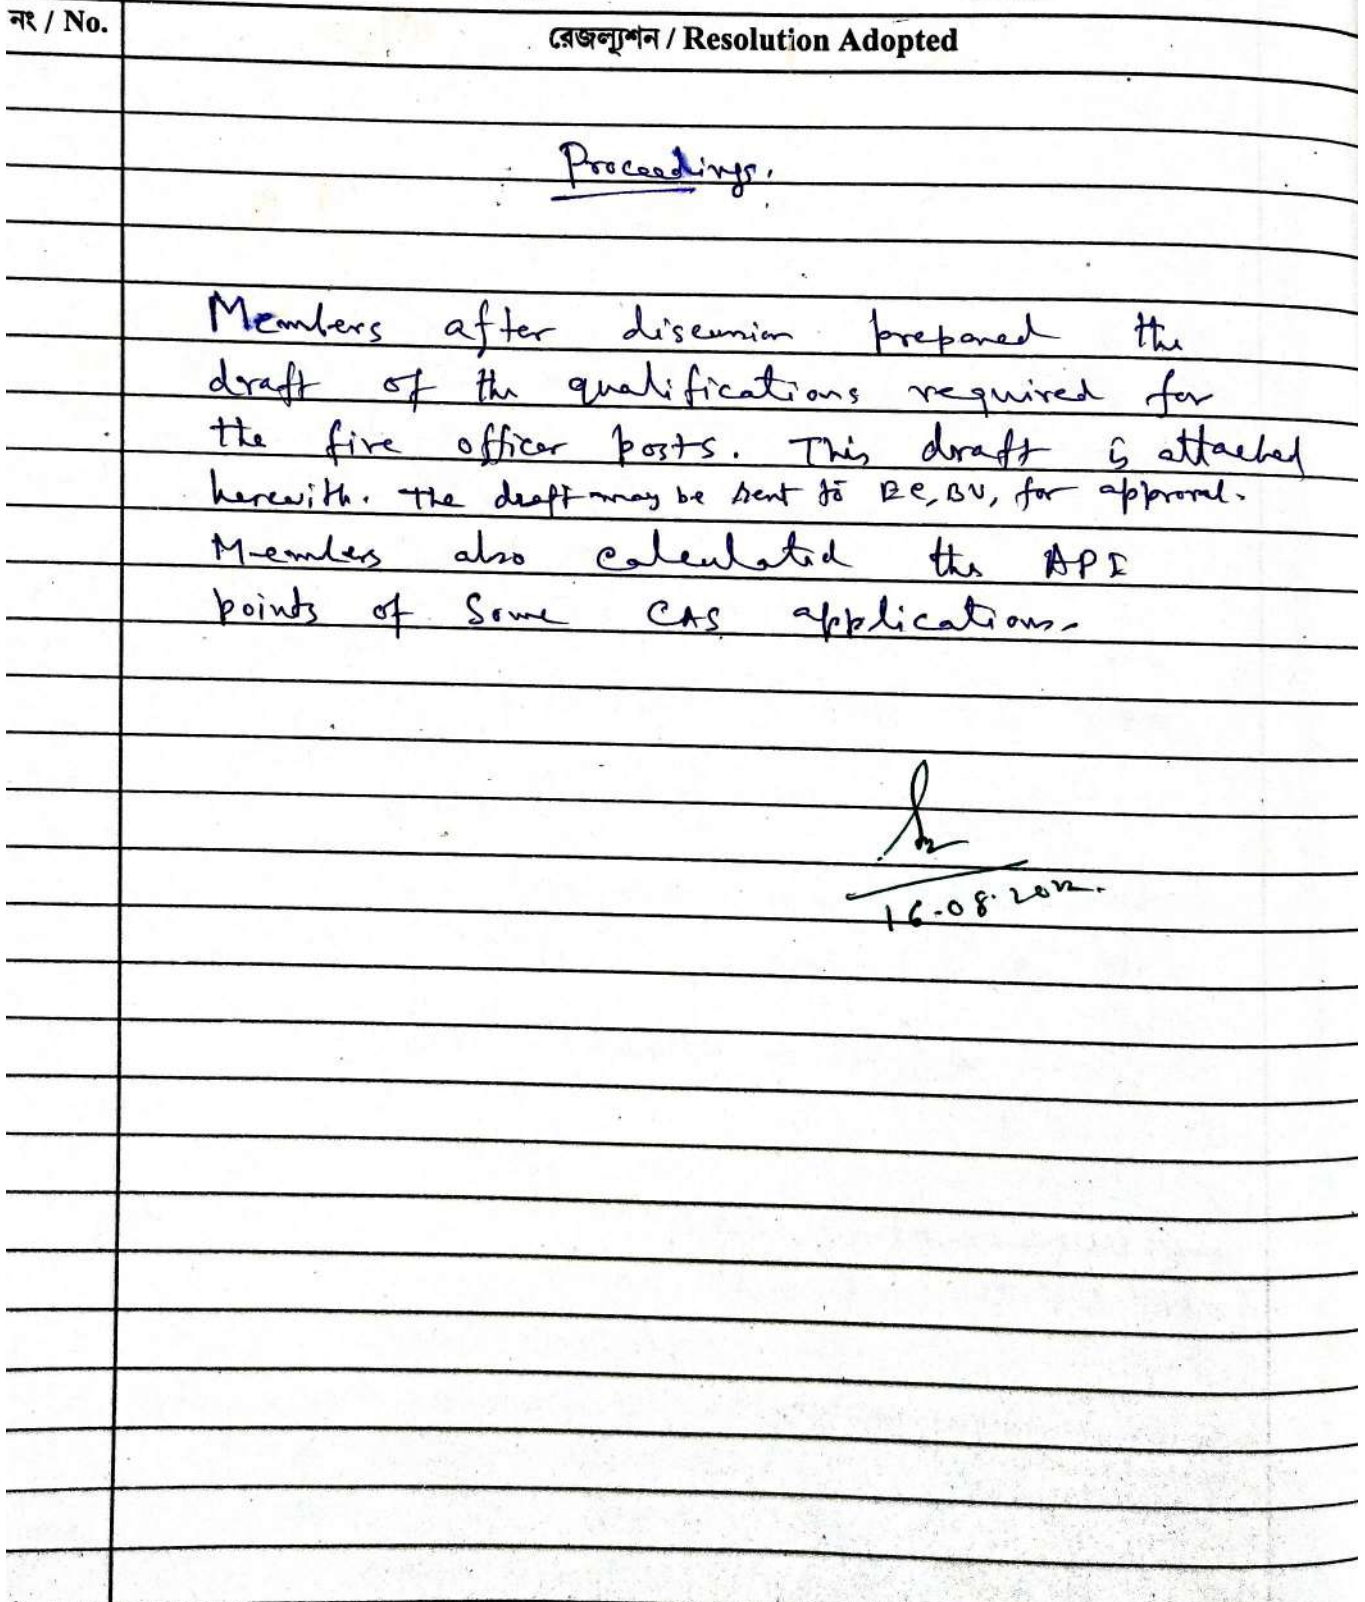 নং / No.
রেজল্যুশন / Resolution Adopted
Proceedings.
Members after discussion prepared the
draft of the qualifications required for
the five officer posts. This draft is attached
herewith. The draft may be sent to EC, BU, for approval.
Members also calculated the API
points of Some CAS applications.
16.08.2022.